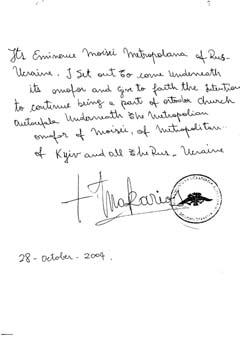 Its Eminence Moisei Metropolana of Rus-
Ucraine. I Set out to come Underneath
its omofor and give to faith the intention
to continue being a part of ortodox church
Autocefala Underneath the Metropolian
omofor of Moisei, of Metropolitan..
of Kyiv and all the Rus_ Ucraine
+ Makarios
28 - October - 2009.